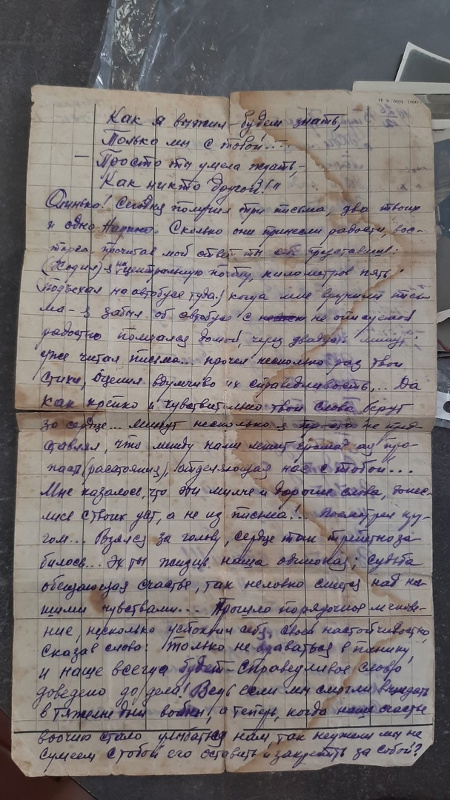 Как я выжил – будем знать,
Только мы с тобой....
– Просто ты умела ждать, –
Как никто другой!"
Сегодня получил три письма, два твоих
и одно Сколько они принесли радости, вос-
торга прочитав мой ответ ты себе представишь:
(Ходил) я на центральную почту, километров пять
подъехал на автобусе туда) когда мне вручили пись-
ма – я забыл об автобусе и с не
радостно помчался домой, через двадцать минут
уже читал письма... прочел несколько раз твои
стихи, оценил вдумчиво их справедливость... Да
как крепко и чувствительно твои слова берут
за сердце... минут несколько я просто не пред-
ставлял, что между нами лежит громадная про-
пасть (расстояния), отделяющая нас с тобой...
Мне казалось, что эти милые и дорогие слова, донес-
лись с твоих уст, а не из письма!.. посмотрел кру-
гом... Взялся за голову, сердце так трепетно за-
билось... Эх ты жизнь наша судьба
обещающая счастье, так неловко смеётся над на-
шими чувствами... Прошло порядочное мгнове-
ние, несколько успокоил себя, своей настойчивостью,
сказав слова: Только не вдаваться в панику,
и наше всегда будет – справедливое слово
доведено до дела! Ведь если мы смогли
в тяжелые дни войны, а теперь, когда наше счастье
воочию стало улыбаться нам, так неужели мы не
сумеем с тобой его оставить и закрепить за собой?